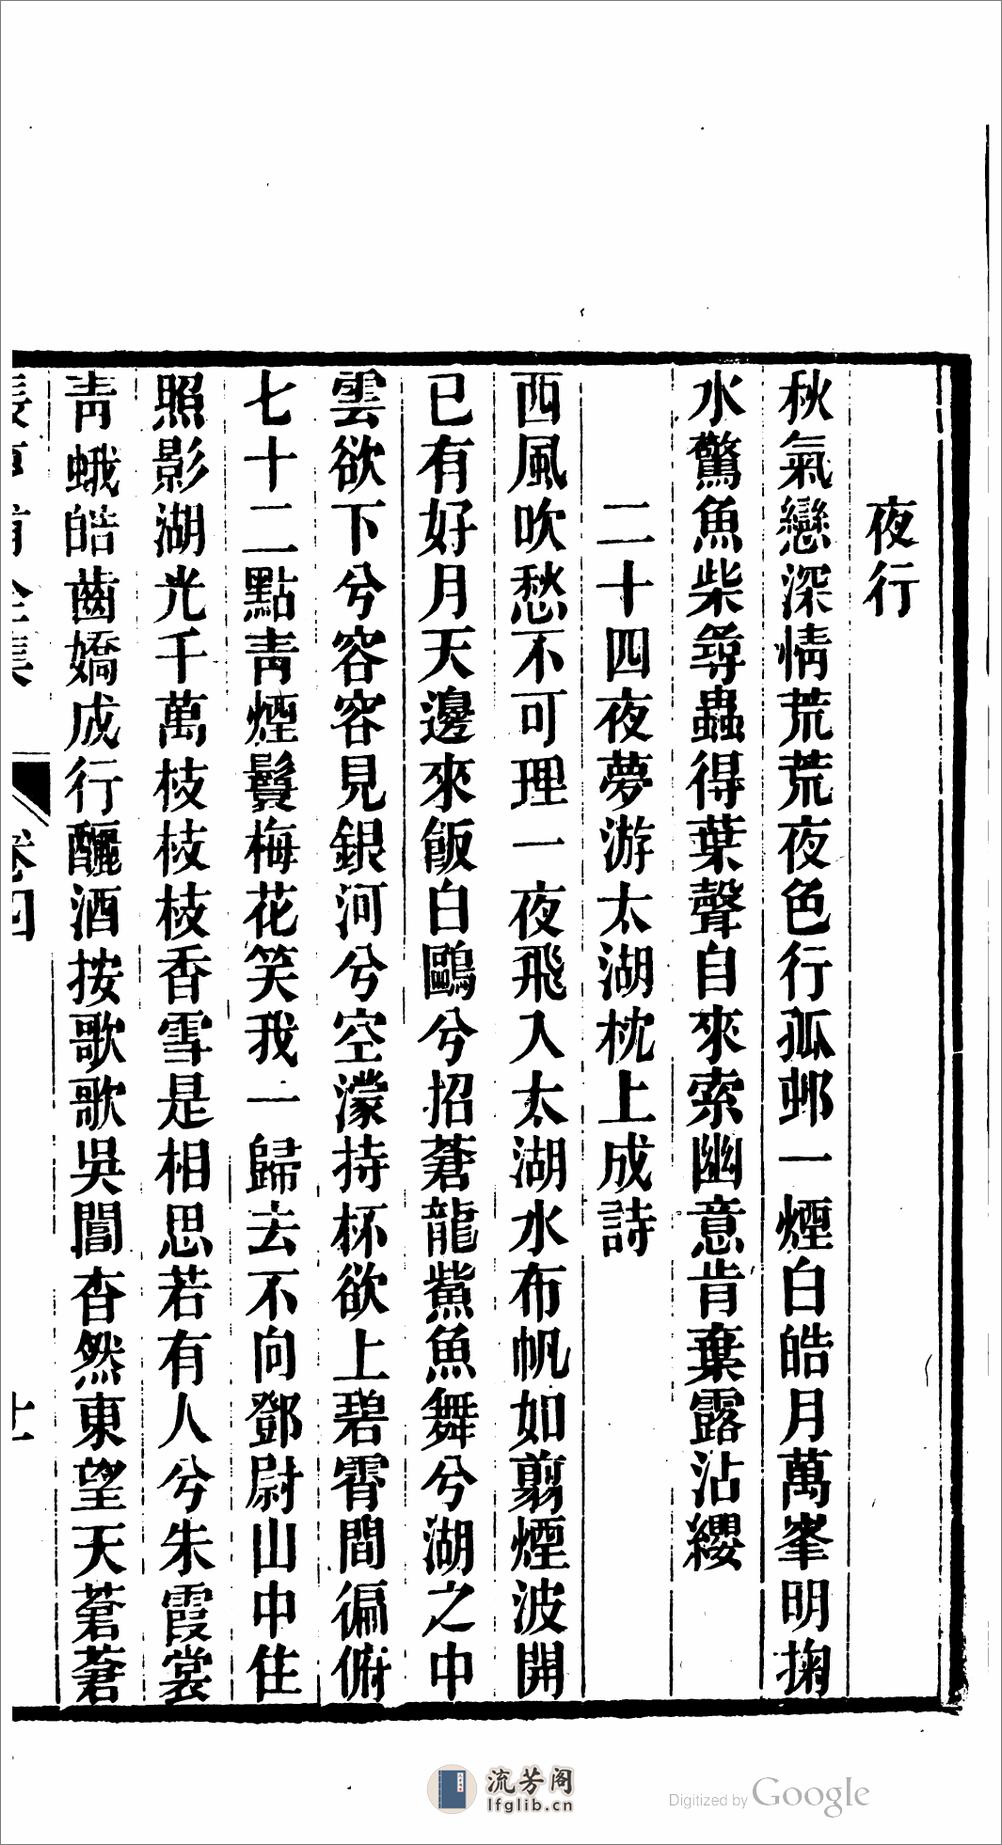 夜行
秋氣戀深情荒荒夜色行孤邨一煙白皓月萬峯明掬
水驚魚柴尋蟲得葉聲自來索幽意肯棄露沾纓
二十四夜夢游太湖枕上成詩
西風吹愁不可理一夜飛入太湖水布帆如剪煙波開
已有好月天邊來飯白鷗兮招蒼龍鮆魚舞兮湖之中
雲欲下兮容容見銀河兮空濛持杯欲上碧霄間徧俯
七十二點青煙鬟梅花笑我一歸去不向鄧尉山中住
照影湖光千萬枝枝枝香雪是相思若有人兮朱霞裳
青蛾皓齒嬌成行釃酒按歌歌吳閶杳然東望天蒼蒼
全集 卷四
流芳阁
lfglib.cn
Digitized by Google